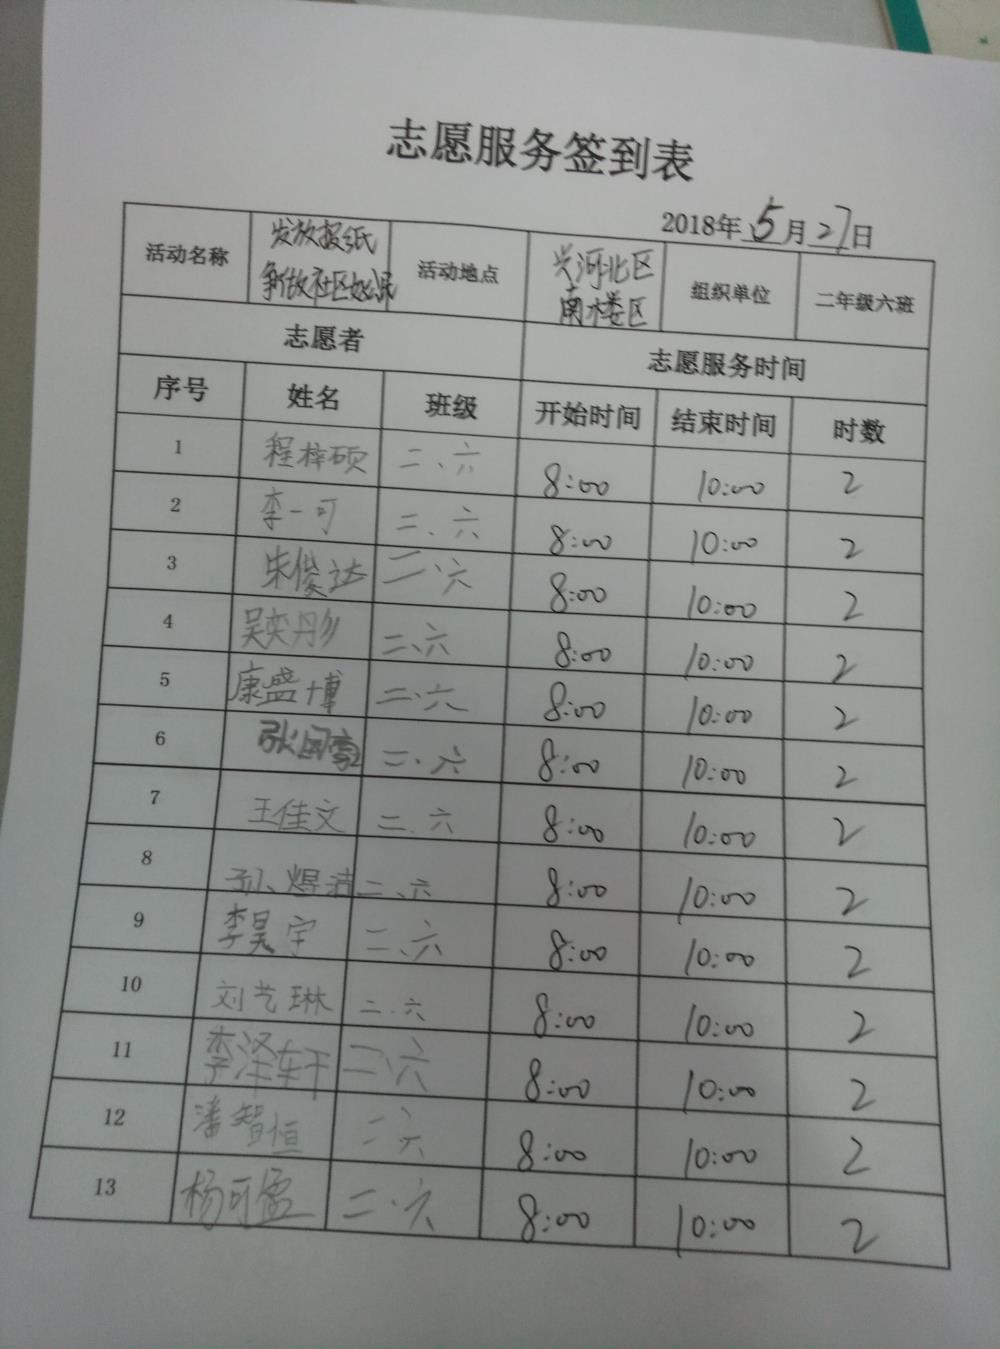 志愿服务签到表
2018年5月27日
活动名称 发放报纸 争做社区好公民 活动地点 兴河北区 南楼区 组织单位 二年级六班
志愿者 志愿服务时间
序号 姓名 班级 开始时间 结束时间 时数
1 程梓硕 二、六 8:00 10:00 2
2 李一可 二、六 8:00 10:00 2
3 朱俊达 二、六 8:00 10:00 2
4 吴奕彤 二、六 8:00 10:00 2
5 康盛博 二、六 8:00 10:00 2
6 张国豪 二、六 8:00 10:00 2
7 王佳文 二.六 8:00 10:00 2
8 孙煜洁 二、六 8:00 10:00 2
9 李昊宇 二、六 8:00 10:00 2
10 刘艺琳 二.六 8:00 10:00 2
11 李泽轩 二、六 8:00 10:00 2
12 潘智恒 二六 8:00 10:00 2
13 杨可 二.六 8:00 10:00 2